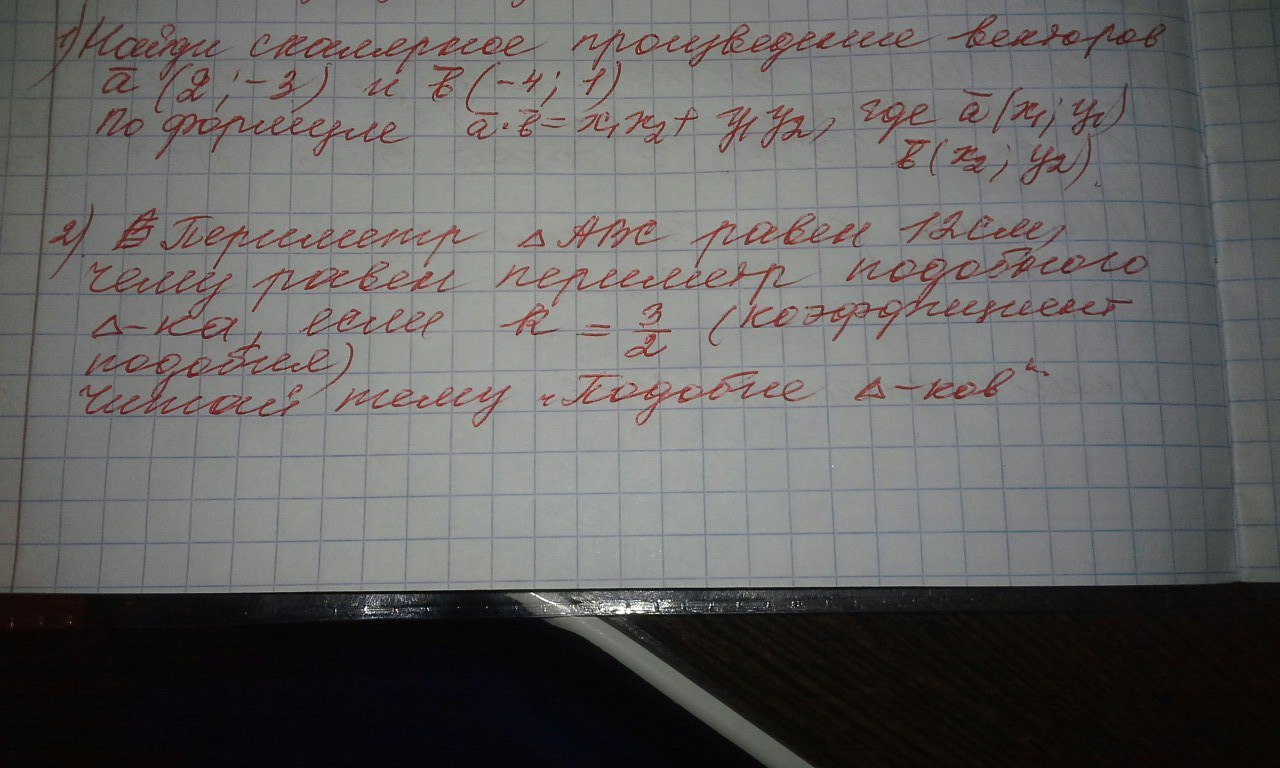 1) Найди скалярное произведение векторов
a̅ (2; -3) и b̅ (-4; 1)
по формуле a̅·b̅ = x₁x₂ + y₁y₂, где a̅ (x₁; y₁)
b̅ (x₂; y₂).
2) Периметр △ABC равен 12см,
чему равен периметр подобного
△-ка, если k = 3/2 (коэффициент
подобия)
Читай тему „Подобие △-ков“